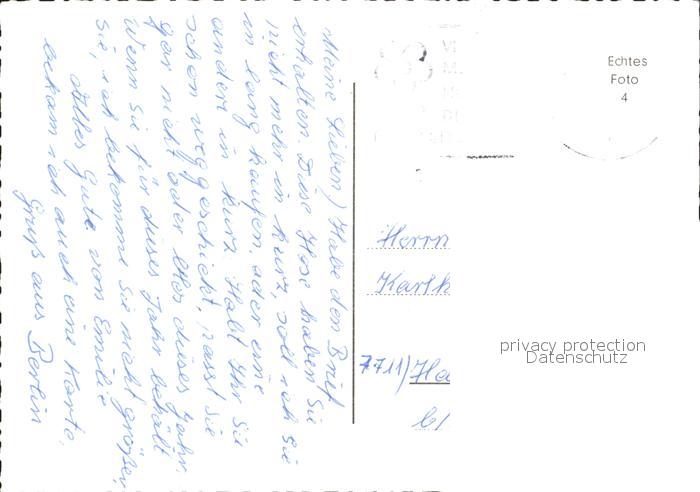 Meine Lieben! Habe den Brief
erhalten. Diese Hose haben sie
nicht mehr in kurz, soll ich sie
in lang kaufen. oder eine
andere in kurz. Habt Ihr sie
schon weggeschickt, passt sie
gar nicht oder bloß dieses Jahr.
Wenn sie für dieses Jahr behält
sie, ich bekomme sie nicht größer
Alles Gute von Emilie
bekam ich auch eine Karte.
Gruß aus Berlin
Echtes
Foto
4
Herrn
Karl
7711)
privacy protection
Datenschutz